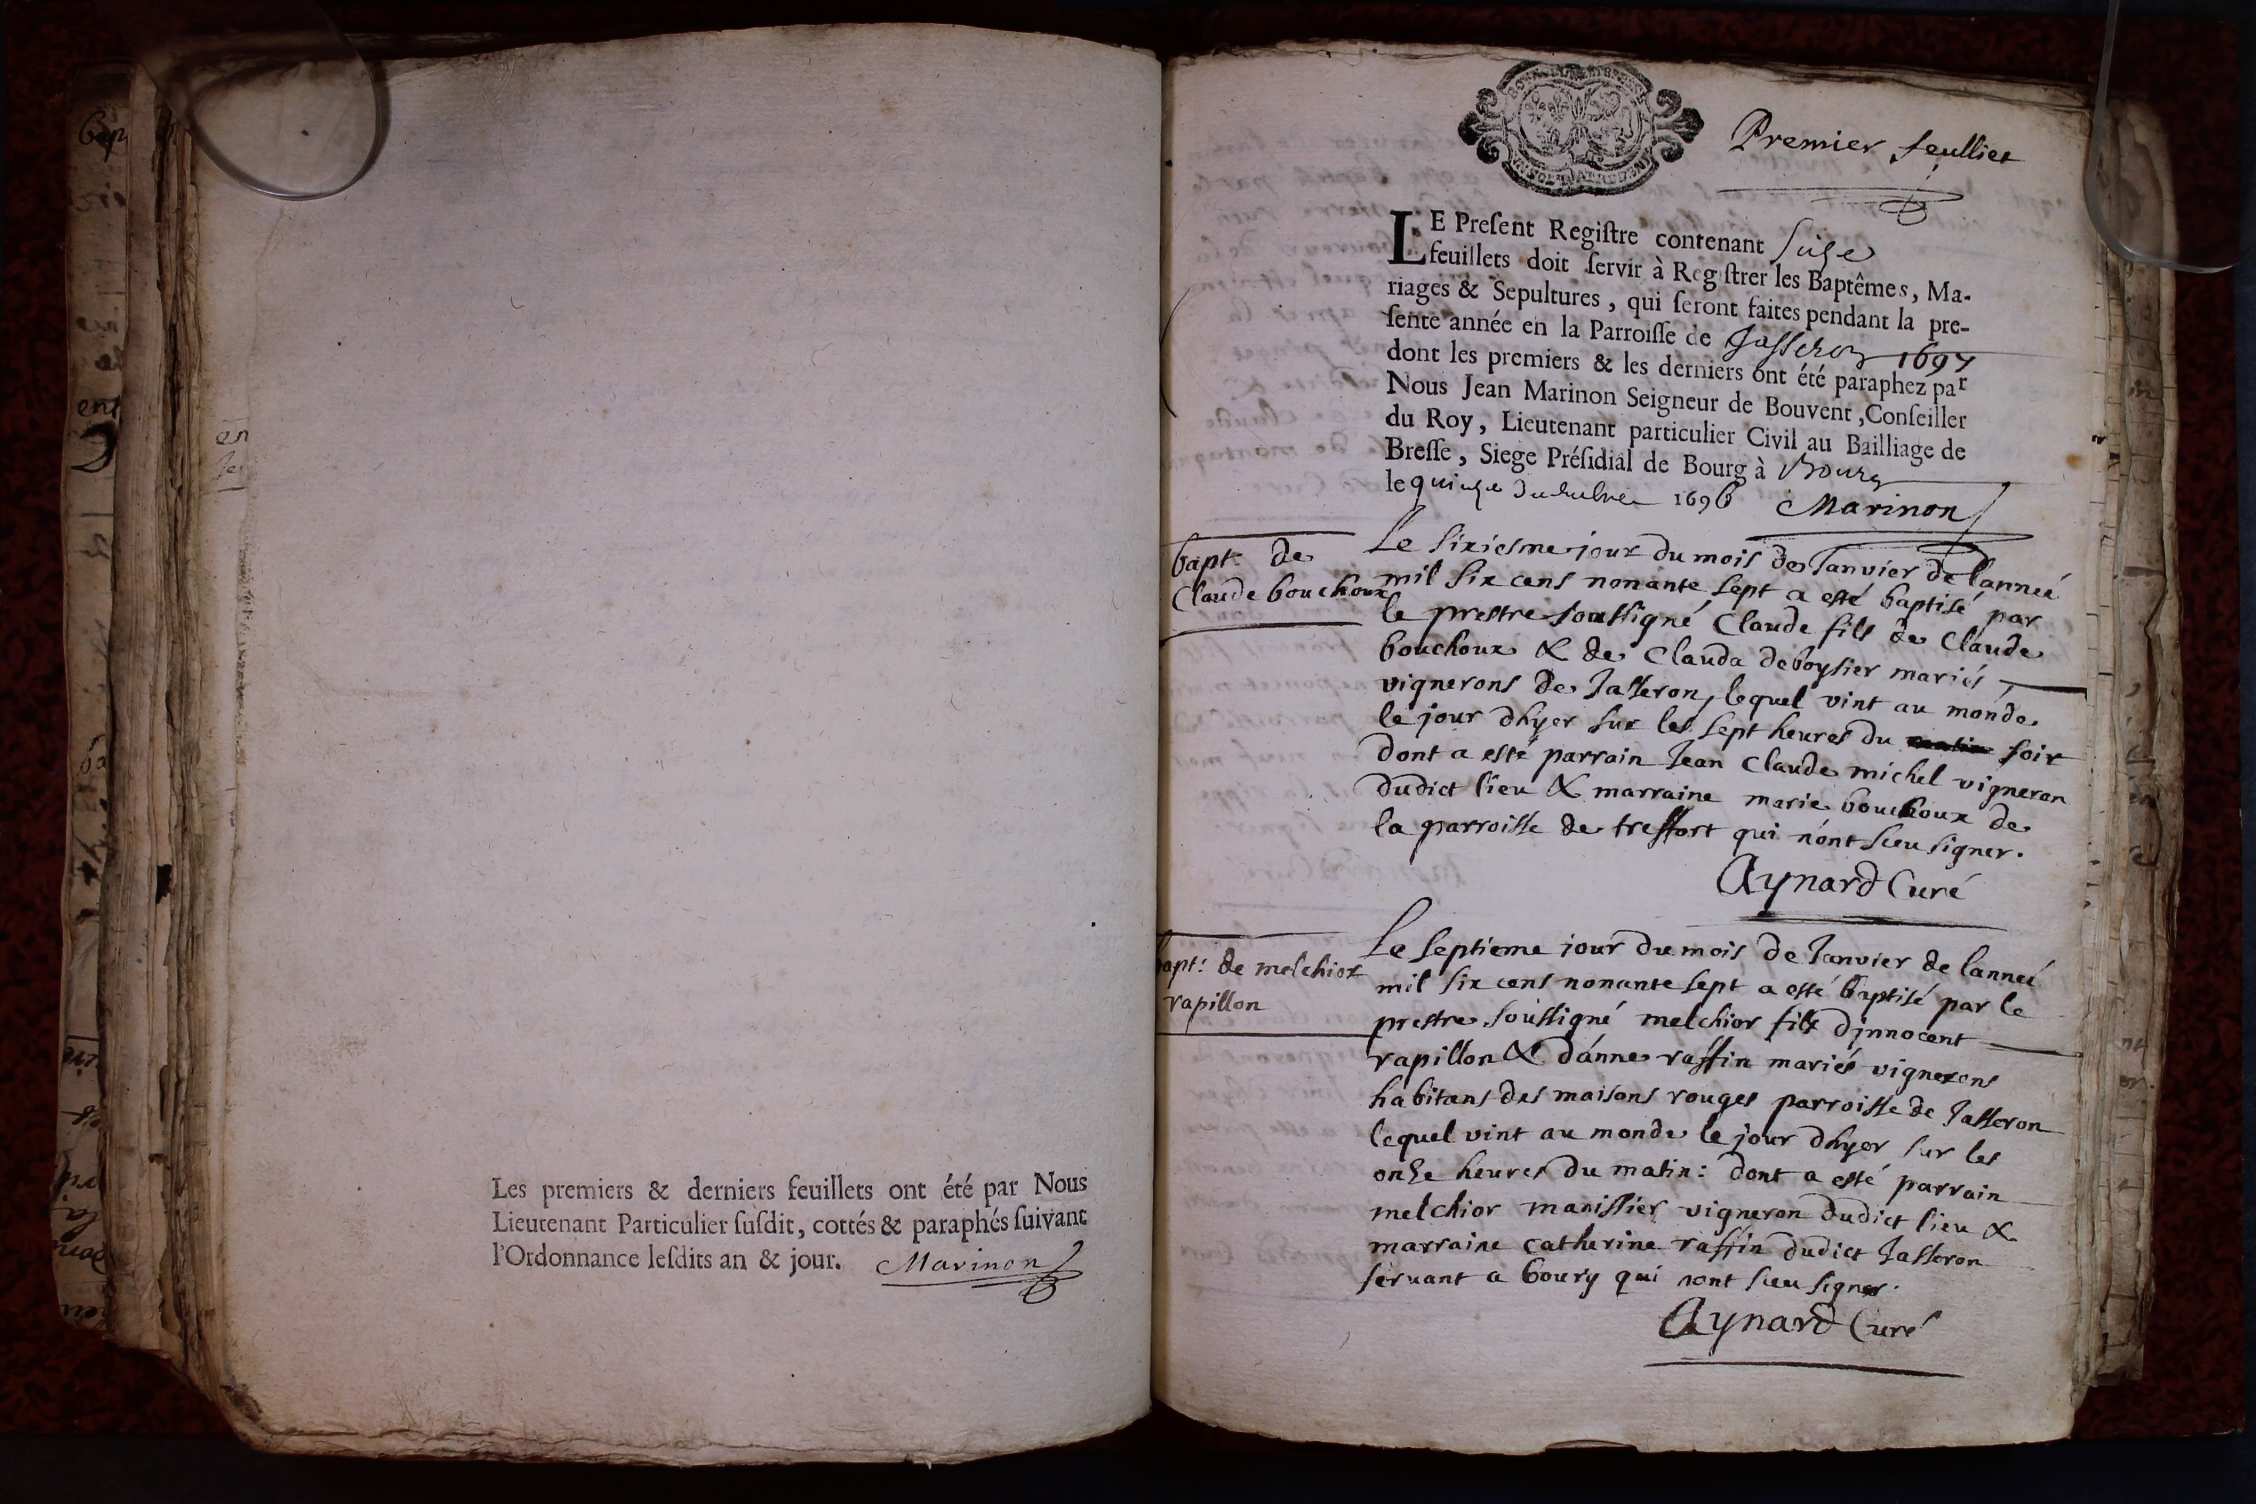 Les premiers & derniers feuillets ont été par Nous
Lieutenant Particulier ſuſdit, cottés & paraphés ſuivant
l'Ordonnance leſdits an & jour. Marinon
Premier feulliet
LE Preſent Regiſtre contenant ſeize
feuillets doit ſervir à Regiſtrer les Baptêmes, Ma-
riages & Sepultures, qui ſeront faites pendant la pre-
ſente année en la Parroiſſe de Jasseron 1697
dont les premiers & les derniers ont été paraphez par
Nous Jean Marinon Seigneur de Bouvent, Conſeiller
du Roy, Lieutenant particulier Civil au Bailliage de
Breſſe, Siege Préſidial de Bourg à Bourg
le quinze 1696 Marinon
bapt. de
Claude bouchoux
Le sixiesme jour du mois de Janvier de lanneé
mil six cens nonante sept a esté baptisé par
le prestre soussigné Claude fils de Claude
bouchoux & de Clauda deboysier mariés
vignerons de Jasseron, lequel vint au monde
le jour dhyer sur les sept heures du soir
dont a esté parrain Jean Claude michel vigneron
dudict lieu & marraine marie bouchoux de
la parroisse de treffort qui n'ont sceu signer.
Aynard Curé
bapt: de melchior
rapillon
Le septieme jour du mois de Janvier de lanneé
mil six cens nonante sept a esté baptisé par le
prestre soussigné melchior fils djnnocent
rapillon & d'anne raffin mariés vignerons
habitans des maisons rouges parroisse de Jasseron
lequel vint au monde le jour dhyer sur les
onze heures du matin: dont a esté parrain
melchior manissier vigneron dudict lieu &
marraine catherine raffin dudict Jasseron
servant a bourg qui nont sceu signer.
Aynard Curé